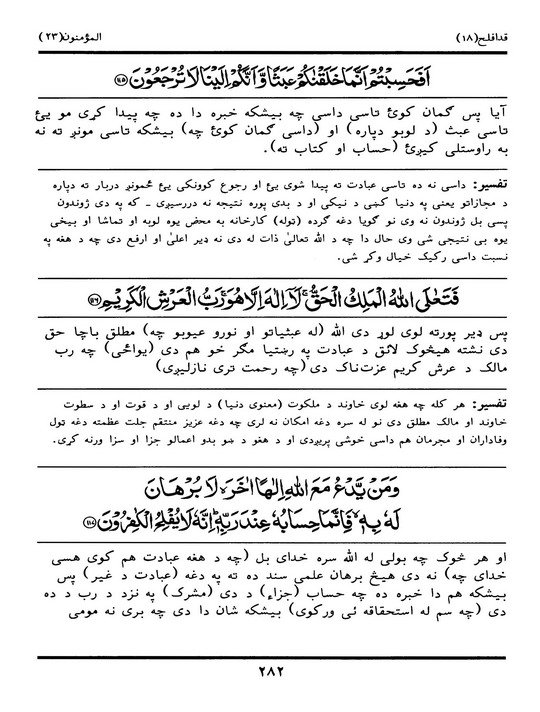 قدافلح(۱۸)
المؤمنون(۲۳)
اَفَحَسِبْتُمْ اَنَّمَا خَلَقْنٰكُمْ عَبَثًا وَّاَنَّكُمْ اِلَيْنَا لَا تُرْجَعُوْنَ ﴿۱۱۵﴾
آیا پس ګمان کوئ تاسی داسی چه بیشکه خبره دا ده چه پیدا کړی مو یئ
تاسی عبث (د لوبو دپاره) او (داسی ګمان کوئ چه) بیشکه تاسی مونږ ته نه
به راوستلی کیږئ (حساب او کتاب ته).
تفسیر: داسی نه ده تاسی عبادت ته پیدا شوی یئ او رجوع کوونکی یئ څمونږ دربار ته دپاره
د مجازاتو یعنی په دنیا کښی د نیکی او د بدی پوره نتیجه نه دررسیږی ـ که په دی ژوندون
پسی بل ژوندون نه وی نو ګویا دغه ګرده (توله) کارخانه به محض یوه لوبه او تماشا او بیخی
یوه بی نتیجی شی وی حال دا چه د الله تعالیٰ ذات له دی نه ډیر اعلیٰ او ارفع دی چه د هغه په
نسبت داسی رکیک خیال وکړ شی.
فَتَعٰلَى اللهُ الْمَلِكُ الْحَقُّ ۚ لَاۤ اِلٰهَ اِلَّا هُوَ ۚ رَبُّ الْعَرْشِ الْكَرِيْمِ ﴿۱۱۶﴾
پس ډیر پورته لوی لوړ دی الله (له عبثیاتو او نورو عیوبو چه) مطلق باچا حق
دی نشته هیڅوک لائق د عبادت په رښتیا مګر خو هم دی (یواځی) چه رب
مالک د عرش کریم عزت‌ناک دی (چه رحمت تری نازلیږی)
تفسیر: هر کله چه هغه لوی خاوند د ملکوت (معنوی دنیا) د لوبی او د قوت او د سطوت
خاوند او مالک مطلق دی نو له سره دغه امکان نه لری چه دغه عزیز منتقم جلت عظمته دغه ټول
وفاداران او مجرمان هم داسی خوشی پریږدی او د هغو د ښو بدو اعمالو جزا او سزا ورنه کړی.
وَمَنْ يَّدْعُ مَعَ اللهِ اِلٰهًا اٰخَرَ ۙ لَا بُرْهَانَ
لَهٗ بِهٖ ۙ فَاِنَّمَا حِسَابُهٗ عِنْدَ رَبِّهٖ ؕ اِنَّهٗ لَا يُفْلِحُ الْكٰفِرُوْنَ ﴿۱۱۷﴾
او هر څوک چه بولی له الله سره خدای بل (چه د هغه عبادت هم کوی هسی
خدای چه) نه دی هیڅ برهان علمی سند ده ته په دغه (عبادت د غیر) پس
بیشکه هم دا خبره ده چه حساب (جزاء) د دی (مشرک) په نزد د رب د ده
دی (چه سم له استحقاقه ئی ورکوی) بیشکه شان دا دی چه بری نه مومی
۲۸۲